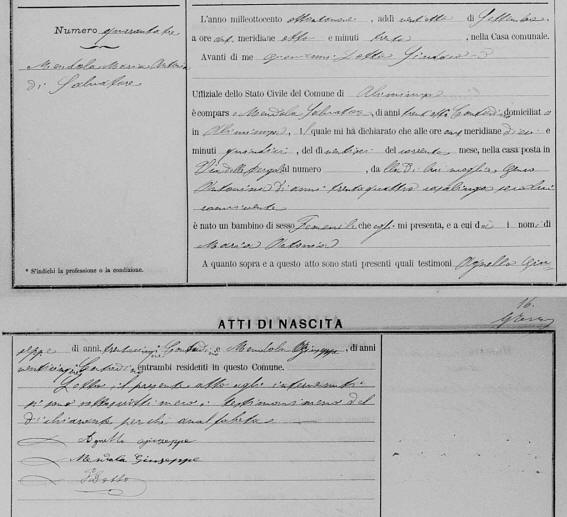 Numero quarantatre
Mendola Maria Antonia
di Salvatore
* S'indichi la professione o la condizione.
L'anno milleottocento ottantanove, addì ventotto di Settembre,
a ore ant. meridiane otto e minuti trenta, nella Casa comunale.
Avanti di me Lotto Sindaco
Uffiziale dello Stato Civile del Comune di Aliminusa
è comparso Mendola Salvatore, di anni trentotto Contadino domiciliato
in Aliminusa, il quale mi ha dichiarato che alle ore ant. meridiane dieci e
minuti quindici, del dì ventisei del corrente mese, nella casa posta in
Via delle al numero , da lla di lui moglie
Antonina di anni trentaquattro casalinga seco lui
convivente
è nato un bambino di sesso Femenile che egli mi presenta, e a cui dà i nomi di
Maria Antonia
A quanto sopra e a questo atto sono stati presenti quali testimoni Agnello Giu-
16.
ATTI DI NASCITA
seppe di anni trentacinque Contadino e Mendola Giuseppe, di anni
venticinque Contadino entrambi residenti in questo Comune.
Letto il presente atto agli intervenuti
si sono sottoscritti meco i testimoni meno del
dichiarante perché analfabeta
Agnello Giuseppe
Mendola Giuseppe
Lotto